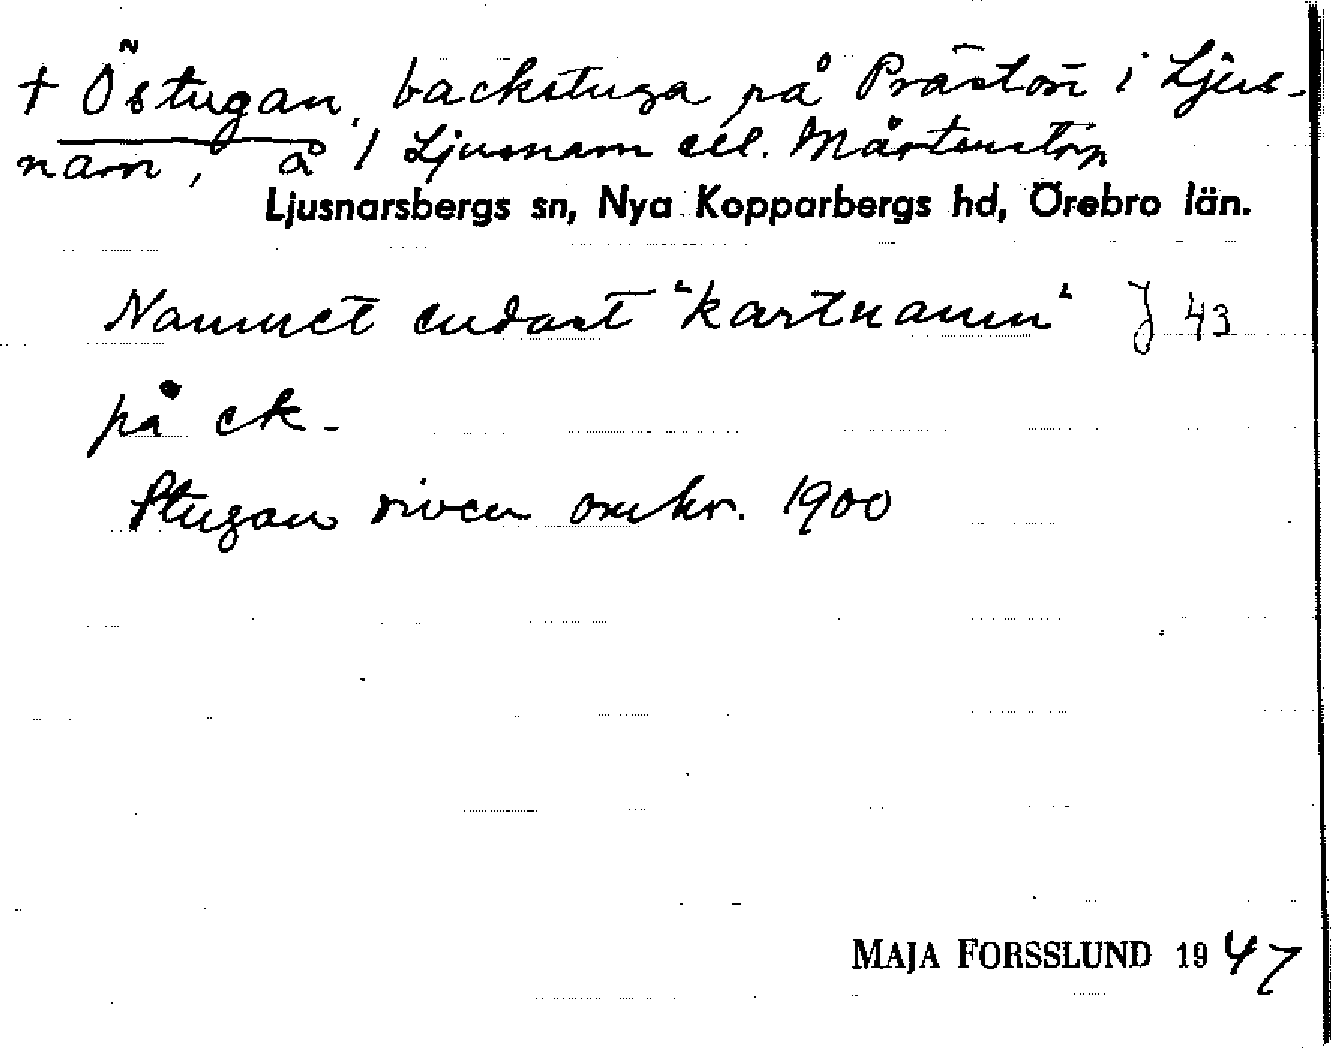 + Östugan, backstuga på Prästön i Ljus-
nam, å 1 Ljusnam ell. Mårtenstorp
Ljusnarsbergs sn, Nya Kopparbergs hd, Örebro län.
Namnet endast "kartnamn" J 43
på ek.
Stugan riven omkr. 1900
MAJA FORSSLUND 1947